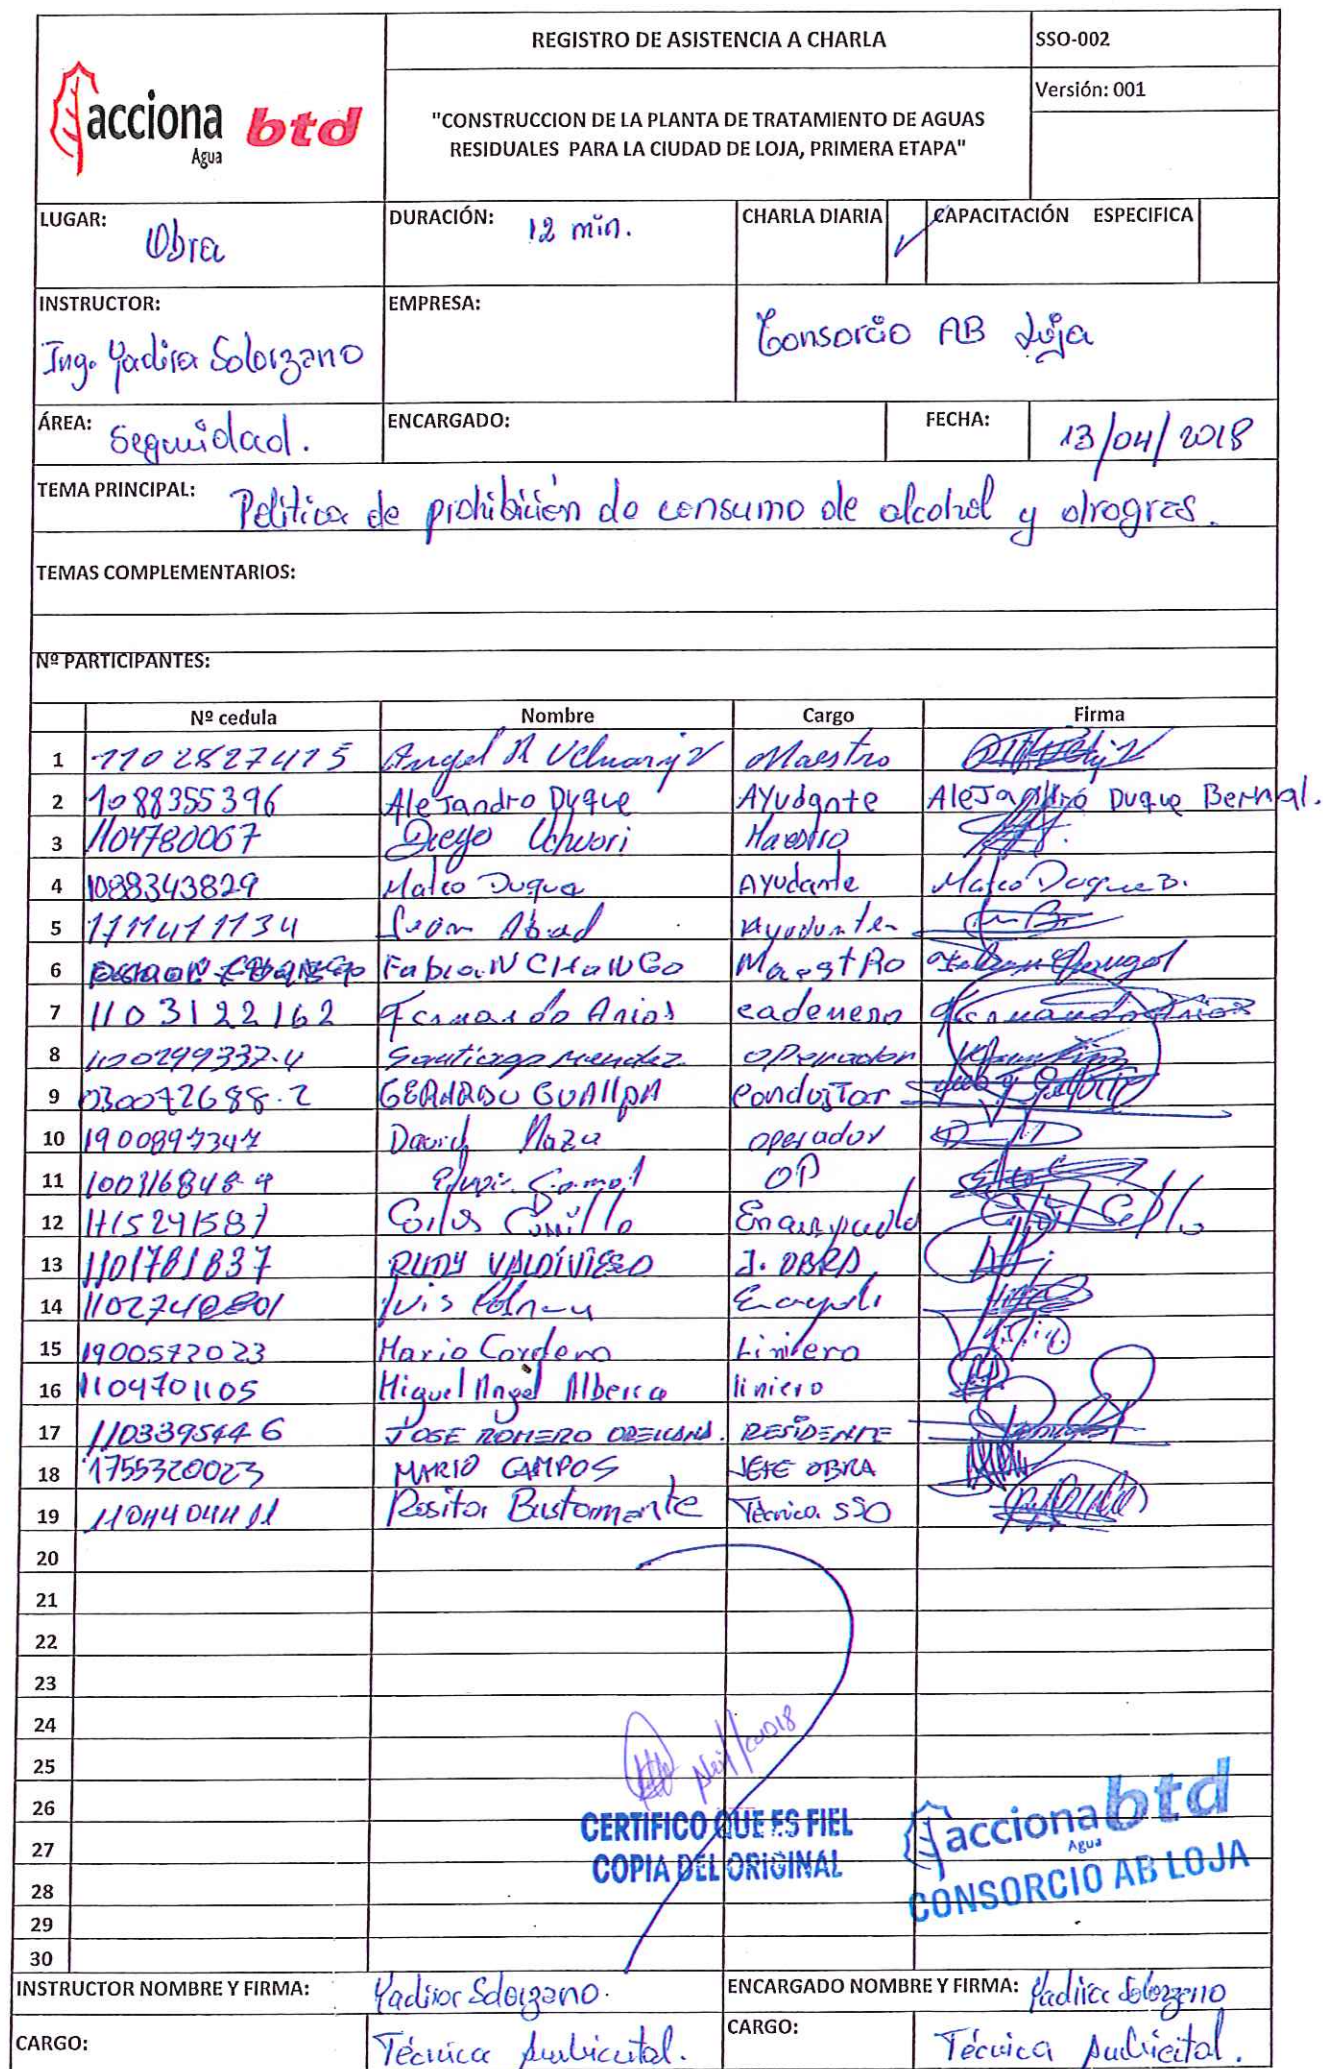 acciona
Agua
btd
REGISTRO DE ASISTENCIA A CHARLA
SSO-002
"CONSTRUCCION DE LA PLANTA DE TRATAMIENTO DE AGUAS
RESIDUALES PARA LA CIUDAD DE LOJA, PRIMERA ETAPA"
Versión: 001
LUGAR: Obra
DURACIÓN: 12 min.
CHARLA DIARIA ✓
CAPACITACIÓN ESPECIFICA
INSTRUCTOR:
Ing. Yadira Solorzano
EMPRESA:
Consorcio AB Loja
ÁREA: Seguridad.
ENCARGADO:
FECHA: 13/04/2018
TEMA PRINCIPAL: Politica de prohibición de consumo de alcohol y drogras.
TEMAS COMPLEMENTARIOS:
Nº PARTICIPANTES:
Nº cedula Nombre Cargo Firma
1 1102827415 Angel R Maestro
2 1088355396 Alejandro Duque Ayudante Alejandro Duque Bernal.
3 1104780067 Diego Maestro
4 1088343829 Mateo Duque Ayudante Mateo Duque B.
5 1711411134 Abad Ayudante
6 FabiaN CHaNGo MaestRo
7 1103122162 Fernando Arias cadenero Fernando Arias
8 110029933-4 Santiago Mendez operador
9 030072688-2 GERARDO GUAllPA conductor
10 1900897347 David Maza operador
11 100316848-9 OP
12 1715291587 Carlos Carrillo
13 1101781837 RUDY VALDIVIESO J. OBRA
14 Luis
15 1900572023 Mario Cordero Liniero
16 1104701105 Miguel Angel Alberca liniero
17 1103395446 JOSE ROMERO ORELLANA. RESIDENTE
18 1755320023 MARIO CAMPOS JEFE OBRA
19 1104404411 Rosita Bustamante Técnica SSO
20
21
22
23
24
25
26
27
28
29
30
CERTIFICO QUE ES FIEL
COPIA DEL ORIGINAL
acciona btd
Agua
CONSORCIO AB LOJA
INSTRUCTOR NOMBRE Y FIRMA: Yadira Solorzano.
ENCARGADO NOMBRE Y FIRMA: Yadira Solorzano
CARGO: Técnica Ambiental.
CARGO: Técnica Ambiental.